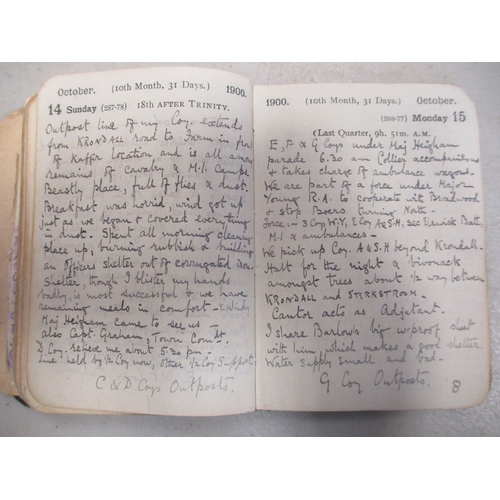 October. (10th Month, 31 Days.) 1900.
14 Sunday (287-78) 18th AFTER TRINITY.
Outpost line of my Coy. extends
from KRONDALL road to Farm in front
of Kaffir location and is all among
remains of Cavalry & M.I. Camps
Beastly place, full of flies & dust.
Breakfast was horrid, wind got up
just as we began & covered everything
in dust. Spent all morning cleaning
place up, burning rubbish & building
an officers shelter out of corrugated iron.
Shelter, though I blister my hands
badly, is most successful & we have
remaining meals in comfort - v. windy
Maj Heigham came to see us -
also Capt. Graham, Town Comdt.
D Coy. relieve me about 5.30 pm -
Line held by 1/2 Coy now, other 1/2 Coy Support.
C & D Coys Outposts.
1900. (10th Month, 31 Days.) October.
(288-77) Monday 15
(Last Quarter, 9h. 51m. A.M.
E, F & G Coys under Maj Heigham
parade 6.30 am Collier accompanies
& takes charge of ambulance waggons.
We are part of a force under Major
Young R.A. to cooperate wit Broadwood
& stop Boers turning North -
Force:- 3 Coy W.Y, 2 Coy A & S.H, sec Elswick Baty
M.I & ambulances -
We pick up Coy. A & S.H beyond Krondall.
Halt for the night & bivouack
amongst trees about 1/2 way between
KRONDALL and STERKSTROOM -
Cantor acts as Adjutant.
I share Barlows big w'proof sheet
with him, which makes a good shelter.
Water Supply small and bad -
G Coy Outposts.
8